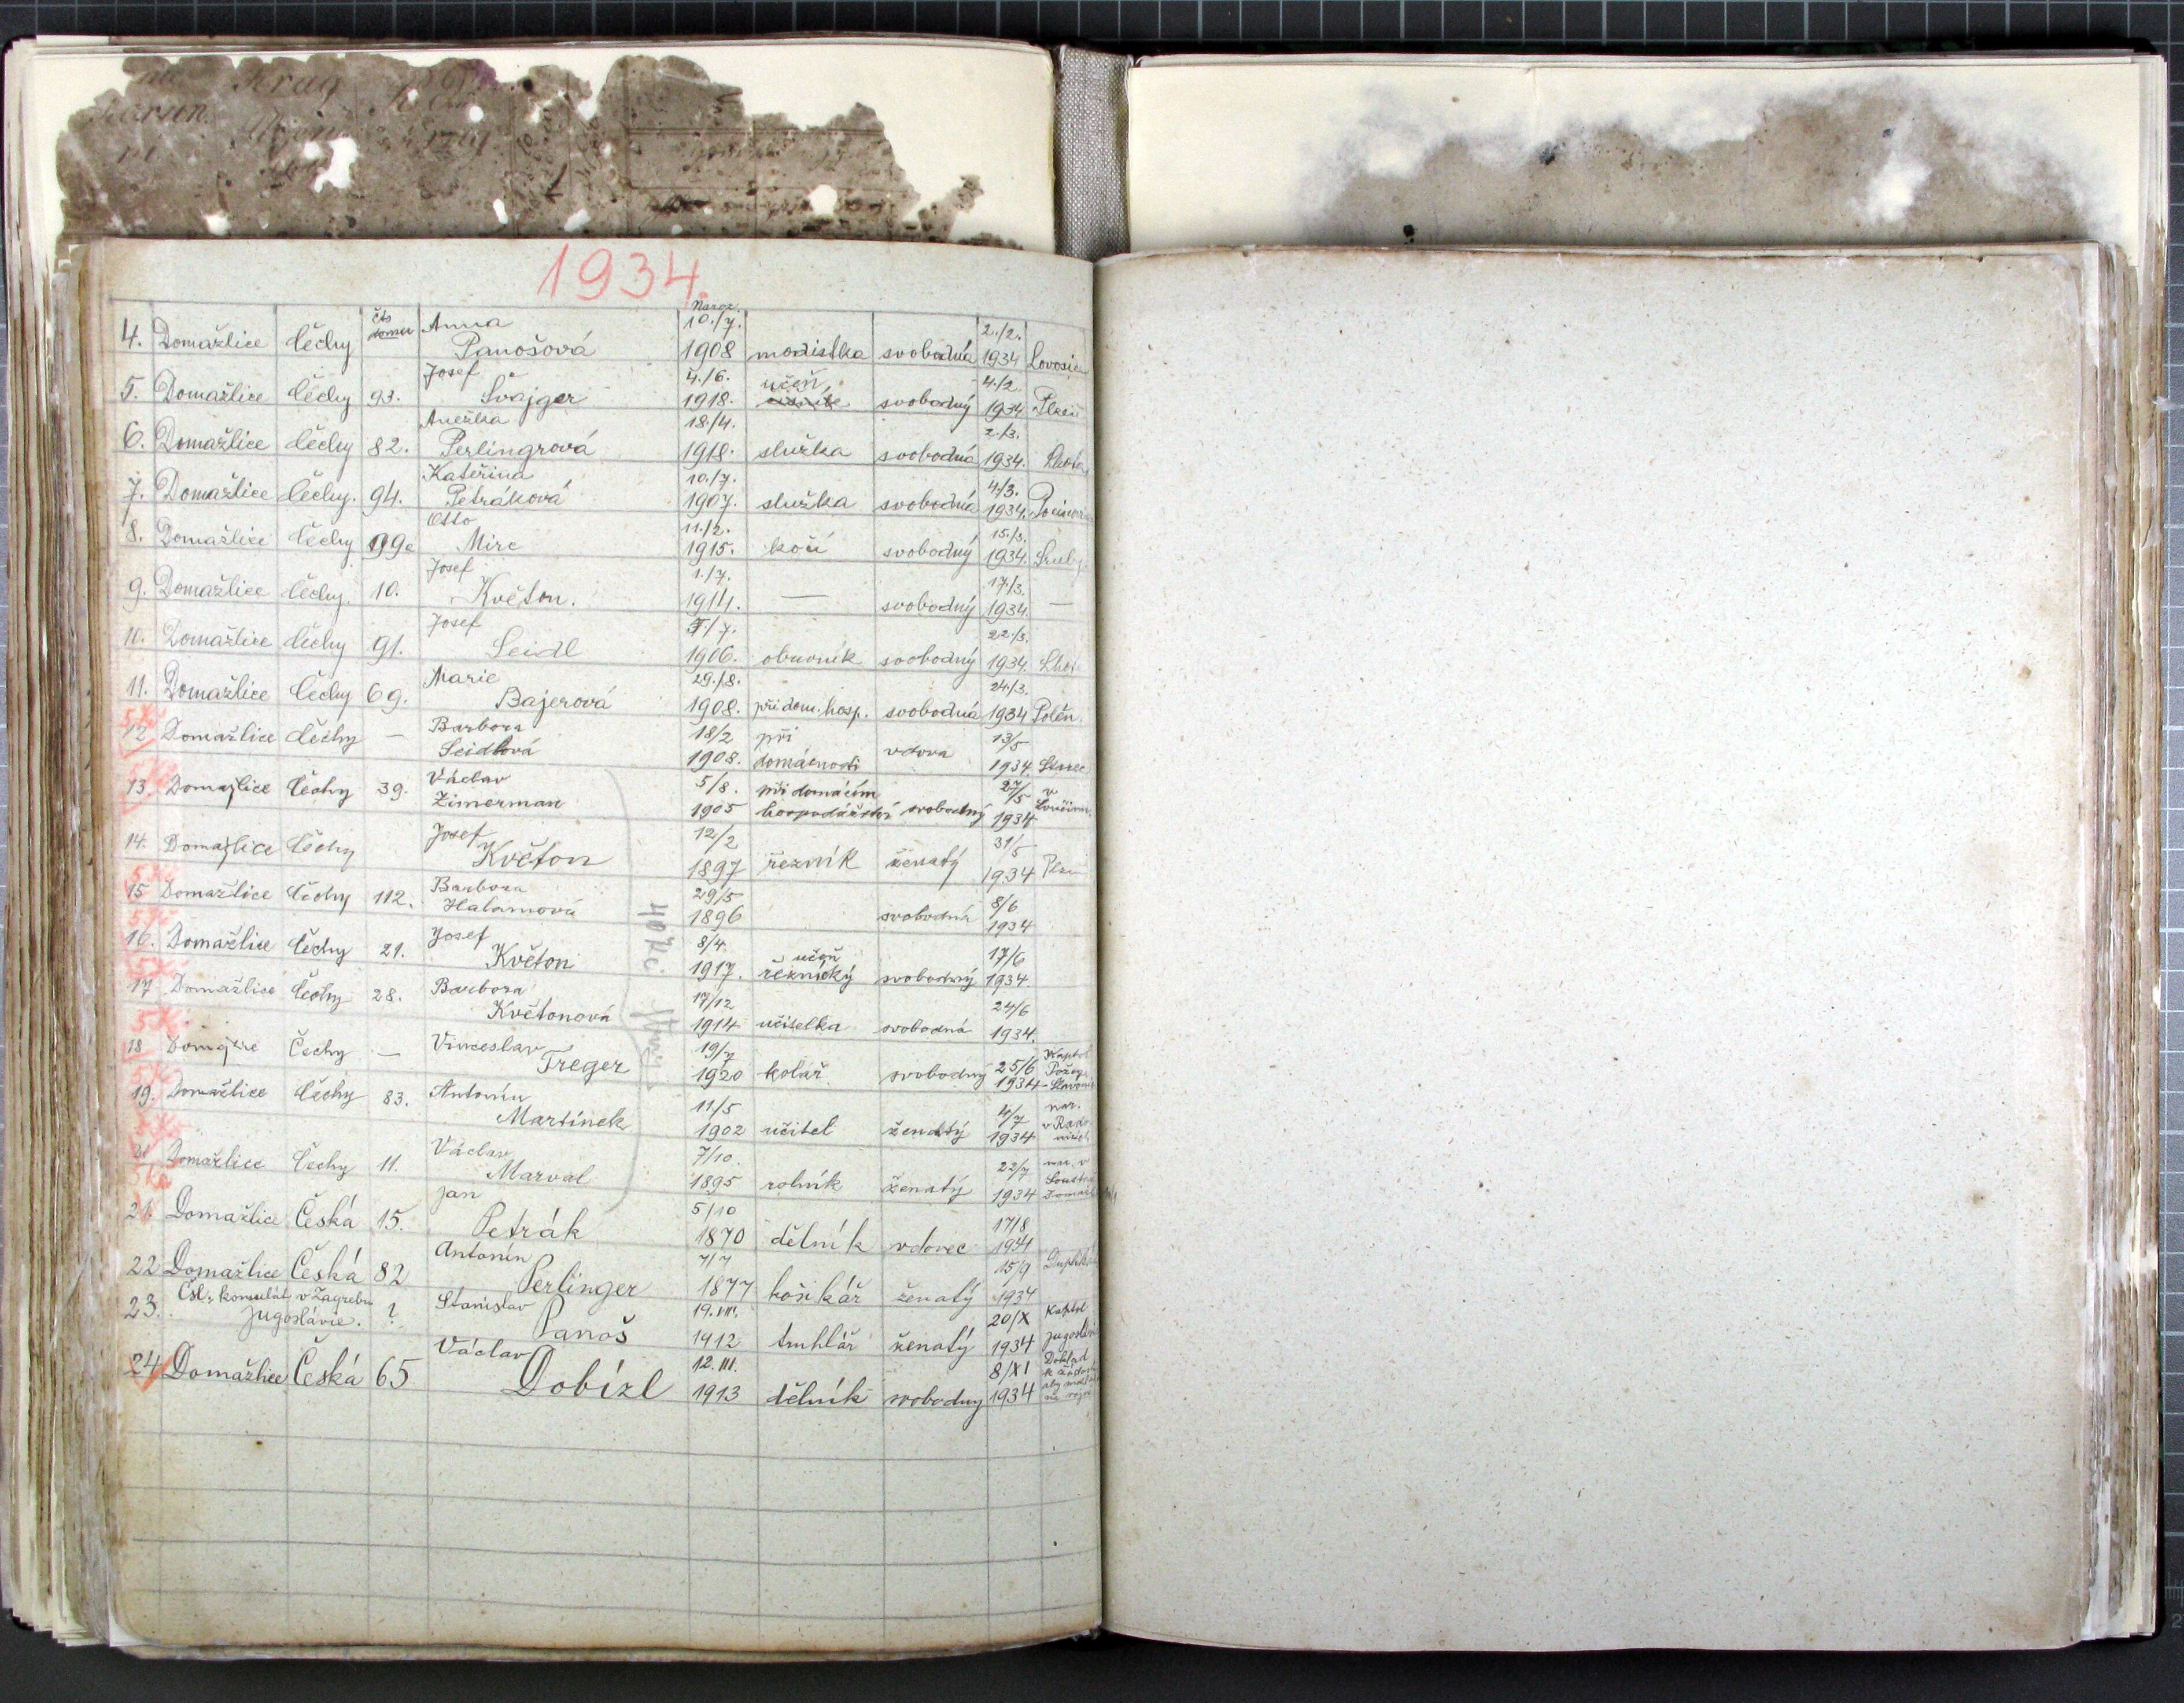 1934.
čís domu
Naroz.
4. Domažlice Čechy Anna Panošová 10./7. 1908 modistka svobodná 2./2. 1934
5. Domažlice Čechy 93. Josef Švajger 4./6. 1918. učeň svobodný 4./2. 1934 Plzeň
6. Domažlice Čechy 82. Anežka Perlingrová 18./4. 1918. služka svobodná 2./3. 1934.
7. Domažlice Čechy. 94. Kateřina Petráková 10./7. 1907. služka svobodná 4./3. 1934.
8. Domažlice Čechy Otto Mirc 11./2. 1915. kočí svobodný 15./3. 1934.
9. Domažlice Čechy. 10. Josef Květon. 1./7. 1914. — svobodný 17./3. 1934. —
10. Domažlice Čechy 91. Josef Seidl 1906. obuvník svobodný 22./3. 1934.
11. Domažlice Čechy 69. Marie Bajerová 29./8. 1908. při dom. hosp. svobodná 24./3. 1934
12 Domažlice Čechy — Barbora Seidlová 18/2 1908. při domácnosti vdova 13/5 1934.
13. Domažlice Čechy 39. Václav Zimerman 5/8. 1905 při domácím hospodářství svobodný 27/5 1934 v
14. Domažlice Čechy Josef Květon 12/2 1897 řezník ženatý 31/5 1934
15 Domažlice Čechy 112. Barbora Halamová 29/5 1896 svobodná 8/6 1934
16. Domažlice Čechy 21. Josef Květon 8/4. 1917. učeň řeznický svobodný 17/6 1934.
17 Domažlice Čechy 28. Barbora Květonová 17/12 1914 učitelka svobodná 24/6 1934.
18 Domažlice Čechy — Vinceslav Treger 19/7 1920 kolář svobodný 25/6 1934
19. Domažlice Čechy 83. Antonín Martínek 11/5 1902 učitel ženatý 4/7 1934 nar.
Domažlice Čechy 11. Václav Marval 7/10. 1895 rolník ženatý 22/7 1934 nar. v
21. Domažlice Česká 15. Jan Petrák 5/10 1870 dělník vdovec 17/8 1934
22 Domažlice Česká 82 Antonín Perlinger 7/7 1877 košikář ženatý 15/9 1934
23. Čsl. konsulát v Zagrebu Jugoslávie. ? Stanislav Panoš 19.VIII. 1912 truhlář ženatý 20/X 1934 Kaptol
24 Domažlice Česká 65 Václav Dobízl 12.III. 1913 dělník svobodny 8/XI 1934